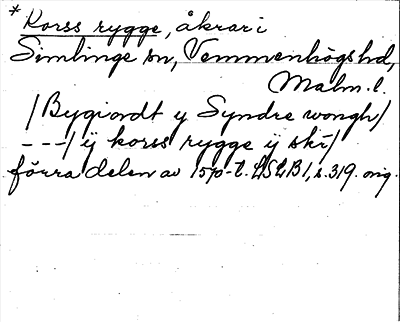 * Korss rygge, åkrar i
Simlinge sn, Vemmenhögs hd,
Malm. l.
/Bygiordt y Syndre wongh/
---/ÿ korss rygge ÿ skī/
förra delen av 1570-t. LSLB1, s. 319. orig.